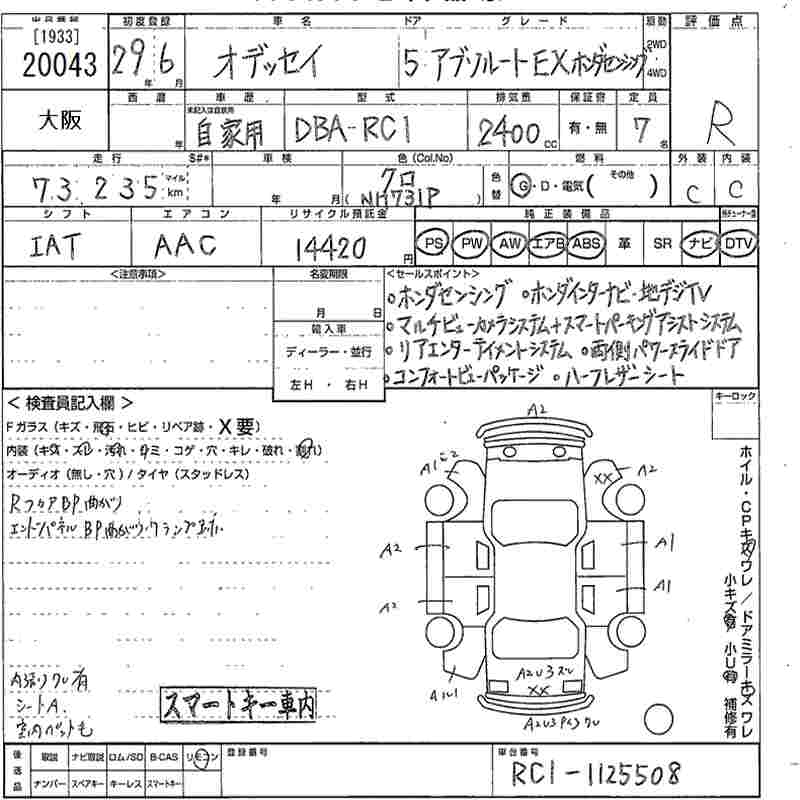 [1933]
20043
初度登録 車名 ドア グレード 駆動 評価点
29年6月 オデッセイ 5 アブソルートEXホンダセンシング 2WD・4WD
R
大阪
西暦 車歴 型式 排気量 保証書 定員
年 未記入は自家用 自家用 DBA-RC1 2400cc 有・無 7名
走行 S#* 車検 色(Col.No) 燃料 外装 内装
73,235 マイル km 年 月 クロ (NH731P) 色替 G・D・電気( その他 ) C C
シフト エアコン リサイクル預託金 純正装備品
IAT AAC 14420円 PS PW AW エアB ABS 革 SR ナビ DTV
<注意事項> 名変期限 <セールスポイント>
月 日
輸入車
ディーラー・並行
左H ・ 右H
○ホンダセンシング ○ホンダインターナビ・地デジTV
○マルチビューカメラシステム+スマートパーキングアシストシステム
○リアエンターテイメントシステム ○両側パワースライドドア
○コンフォートビューパッケージ ○ハーフレザーシート
キーロック
< 検査員記入欄 >
Fガラス(キズ・飛石・ヒビ・リペア跡・X要)
内装(キズ・スレ・汚れ・シミ・コゲ・穴・キレ・破れ・割れ)
オーディオ(無し・穴)/タイヤ(スタッドレス)
RフロアBP曲がり
エンドパネルBP曲がり・クランプ
内張りワレ有
シートA.
スマートキー車内
A2
A2
XX
A2 A1
A2 A1
A2U3スレ
XX
ホイル・CPキズワレ/ドアミラーキズワレ
小キズ有 小U有 補修有
後送品 取説 ナビ取説 ロム/SD B-CAS リモコン 登録番号 車台番号
ナンバー スペアキー キーレス スマートキー
RC1-1125508